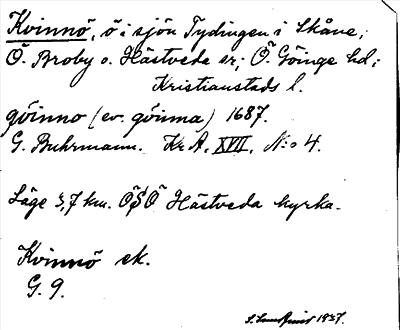 Kvinnö, ö i sjön Tydingen i Skåne;
Ö. Broby o. Hästveda sr; Ö. Göinge hd;
Kristianstads l.
góinno (ev. góinna) 1687.
G. Buhrmann. Kr A, XVII, N:o 4.
Läge 3,7 km. ÖSÖ Hästveda kyrka.
Kvinnö ek.
G. 9.
1937.